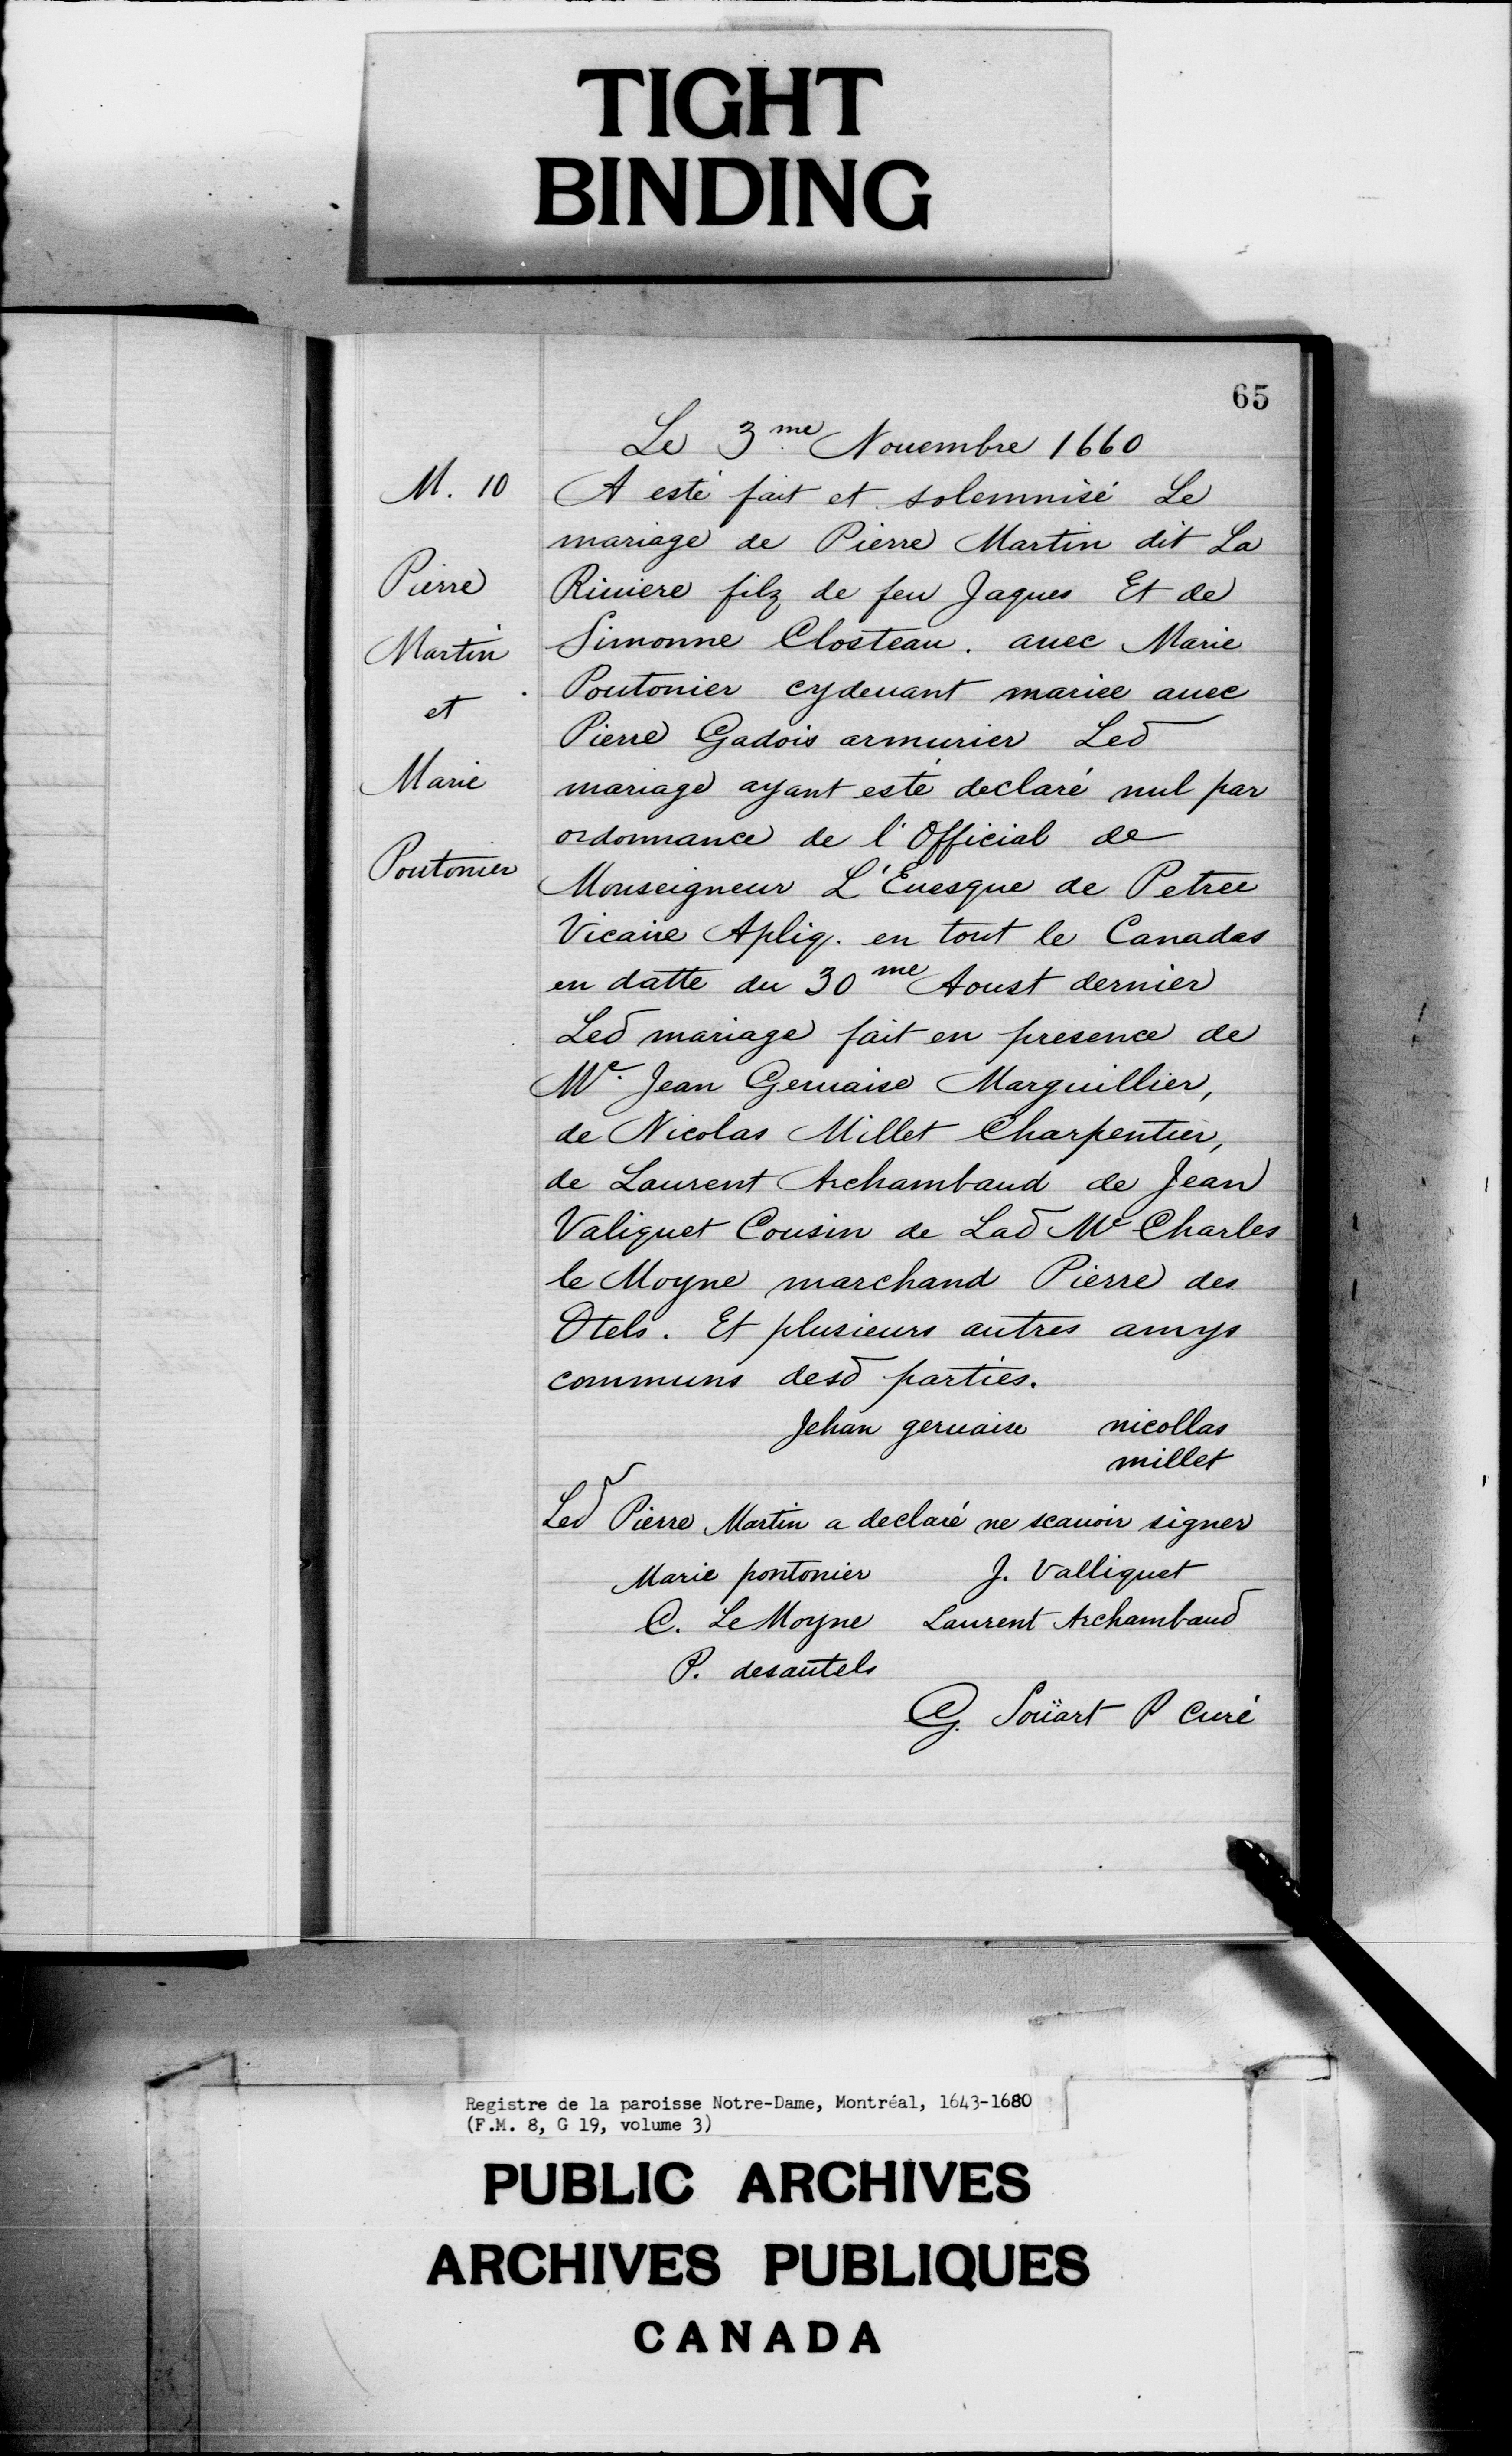 TIGHT
BINDING
65
Le 3me Nouembre 1660
M. 10
Pierre
Martin
et
Marie
Pontonier
A esté fait et solemnisé Le
mariage de Pierre Martin dit La
Riuiere filz de feu Jaques Et de
Simonne Closteau. auec Marie
Pontonier cydeuant mariee auec
Pierre Gadois armurier Led
mariage ayant esté declaré nul par
ordonnance de l'Official de
Monseigneur L'Euesque de Petree
Vicaire Apliq. en tout le Canadas
en datte du 30me Aoust dernier
Led mariage fait en presence de
Me. Jean Geruaise Marguillier,
de Nicolas Millet Charpentier,
de Laurent Archambaud de Jean
Valiquet Cousin de Lad Me Charles
le Moyne marchand Pierre des
Otels. Et plusieurs autres amys
communs desd parties.
Jehan geruaise nicollas
millet
Led Pierre Martin a declaré ne scauoir signer
Marie pontonier J. Valliquet
C. Le Moyne Laurent Archambaud
P. desautels
G. Soüart P Curé
Registre de la paroisse Notre-Dame, Montréal, 1643-1680
(F.M. 8, G 19, volume 3)
PUBLIC ARCHIVES
ARCHIVES PUBLIQUES
CANADA